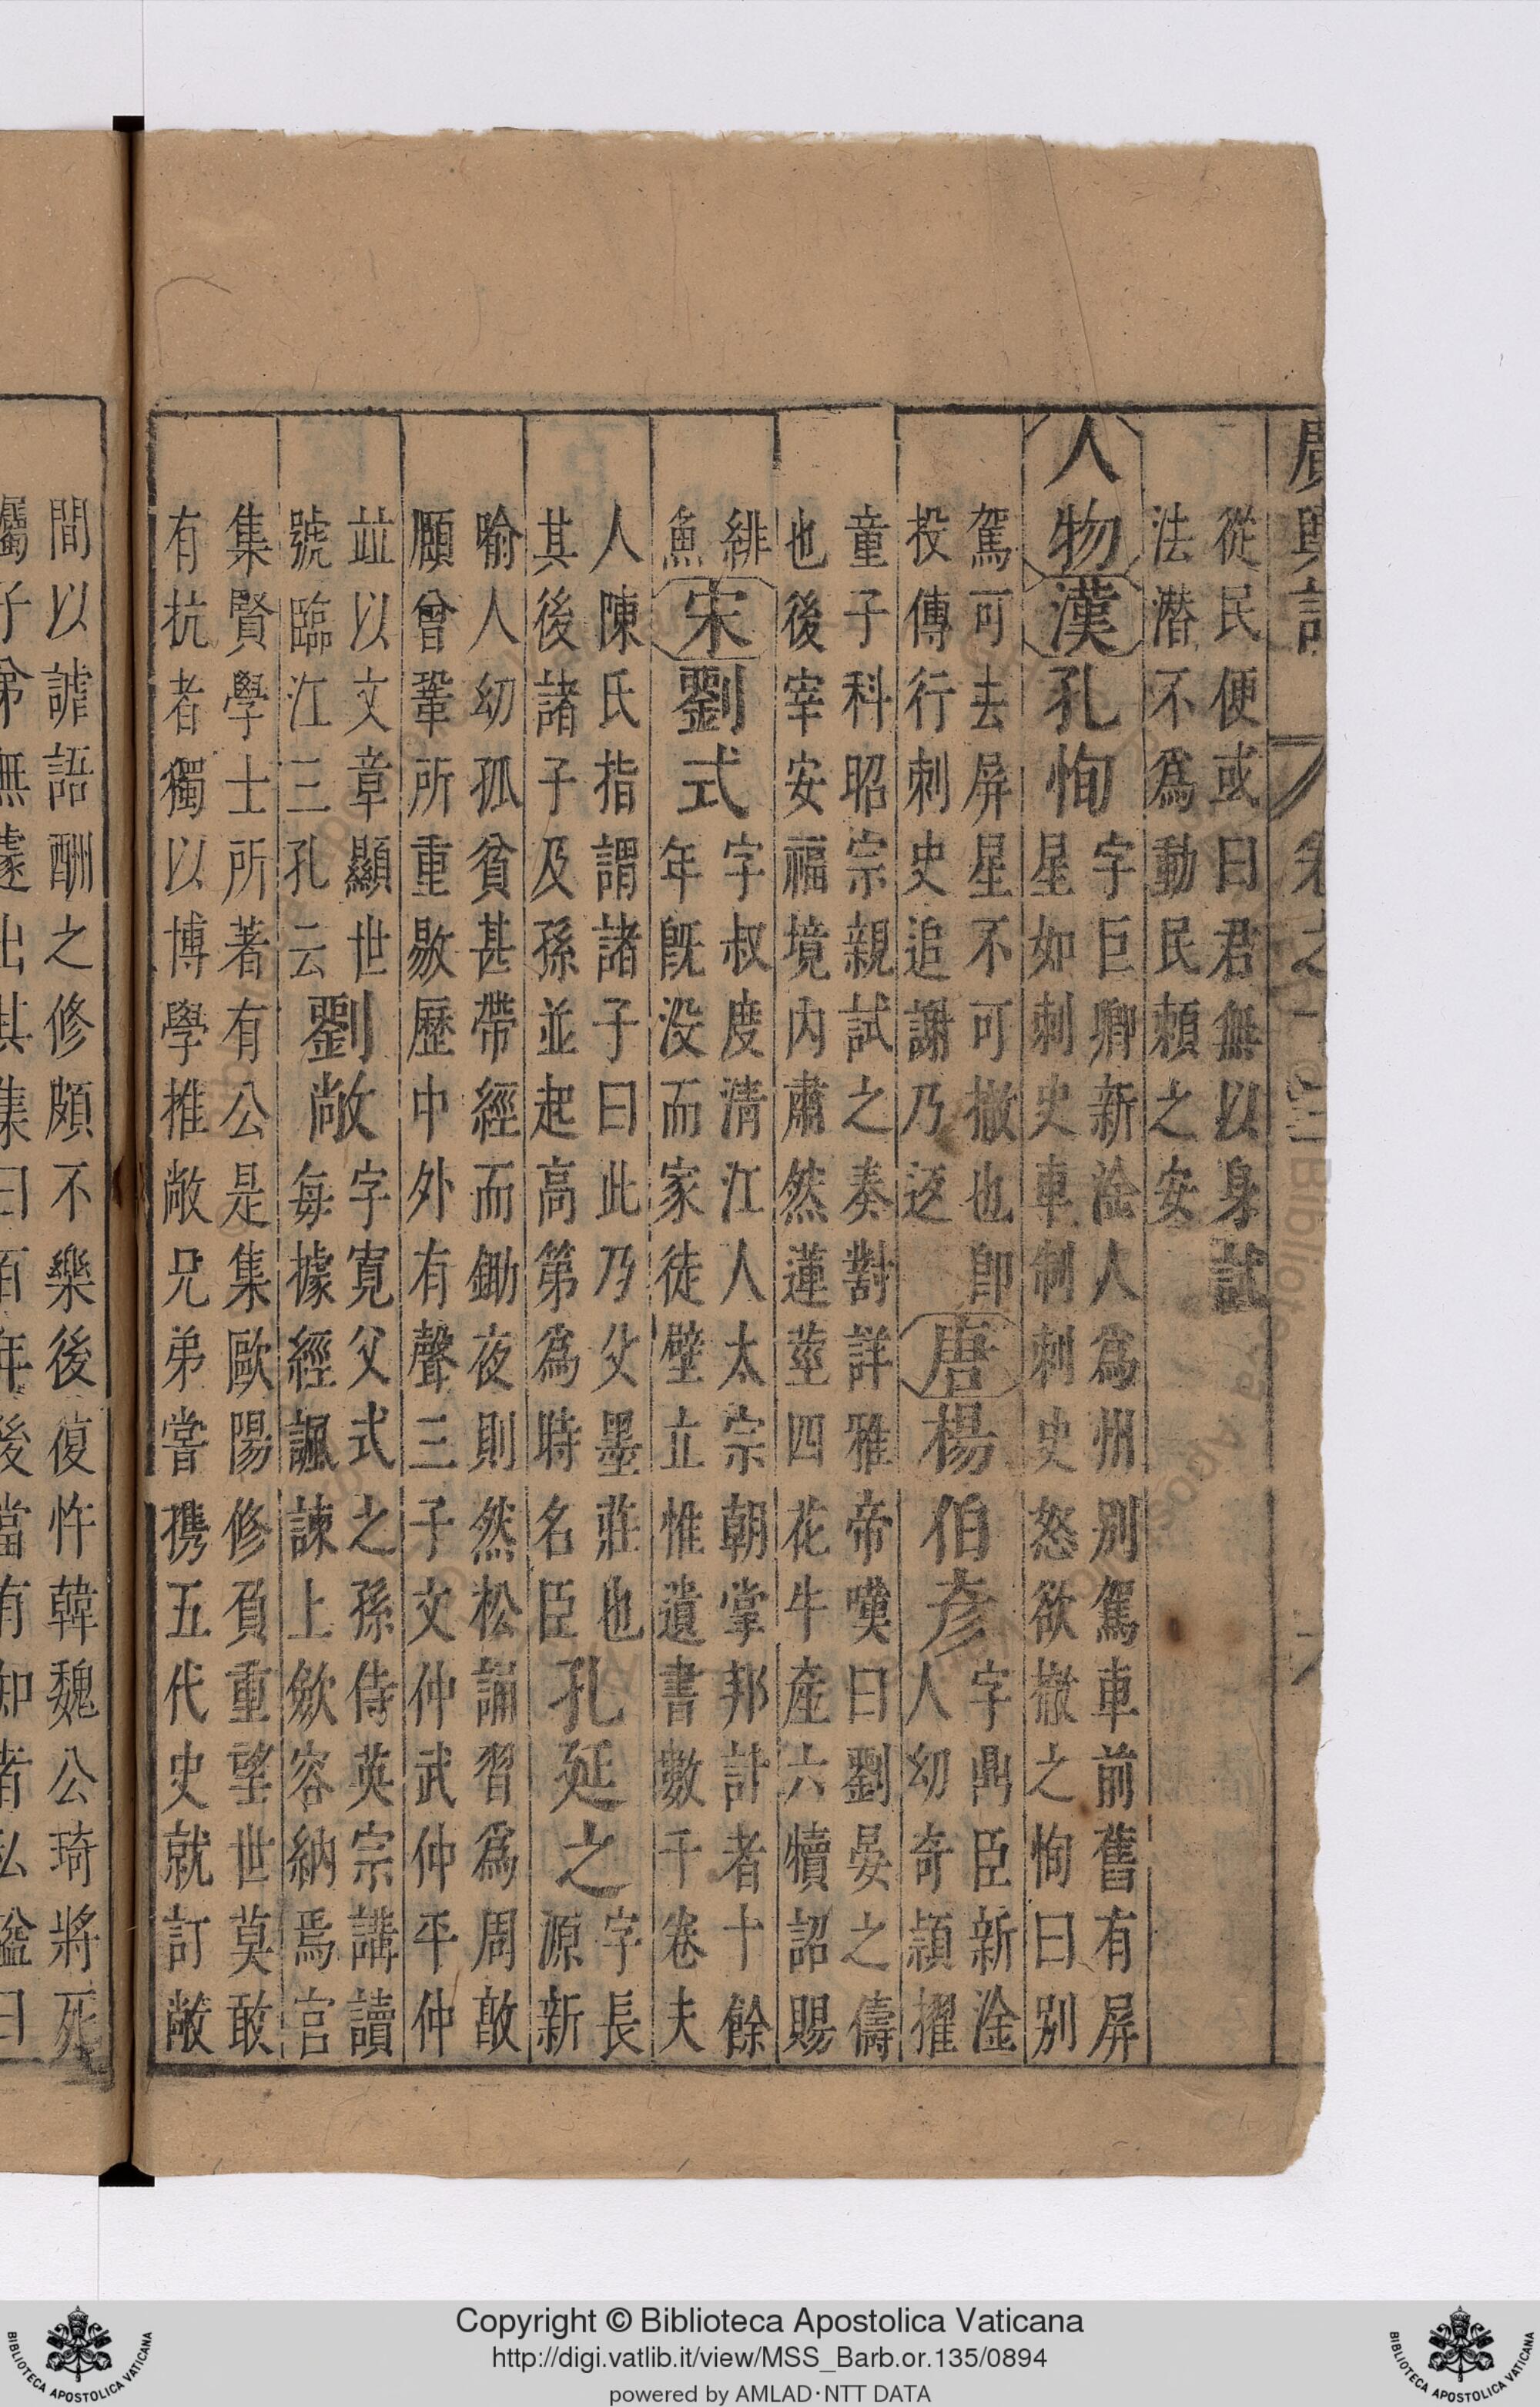 從民便或曰君無以身試
法潛不爲動民頼之安
人物漢孔恂
字巨卿新淦人爲州別駕車前舊有屏
星如刺史車制刺史怒欲撤之恂曰別
駕可去屏星不可撤也卽
投傳行刺史追謝乃返
唐楊伯彥
字鼎臣新淦
人幼奇頴擢
童子科昭宗親試之奏對詳雅帝嘆曰劉晏之儔
也後宰安福境内肅然蓮莖四花牛產六犢詔賜
緋
魚
宋劉式
字叔度清江人太宗朝掌邦計者十餘
年旣没而家徒壁立惟遺書數千卷夫
人陳氏指謂諸子曰此乃父墨莊也
其後諸子及孫並起高第爲時名臣
孔延之
字長
源新
喻人幼孤貧甚帶經而鋤夜則然松誦習爲周敦
頤曾鞏所重歇歷中外有聲三子文仲武仲平仲
並以文章顯世
號臨江三孔云
劉敞
字寬父式之孫侍英宗講讀
每據經諷諫上歛容納焉官
集賢學士所著有公是集歐陽修負重望世莫敢
有抗者獨以博學推敞兄弟嘗携五代史就訂敞
間以謔語酬之修頗不樂後復忤韓魏公琦將死
Copyright © Biblioteca Apostolica Vaticana
http://digi.vatlib.it/view/MSS_Barb.or.135/0894
powered by AMLAD·NTT DATA
BIBLIOTECA APOSTOLICA VATICANA
BIBLIOTECA APOSTOLICA VATICANA